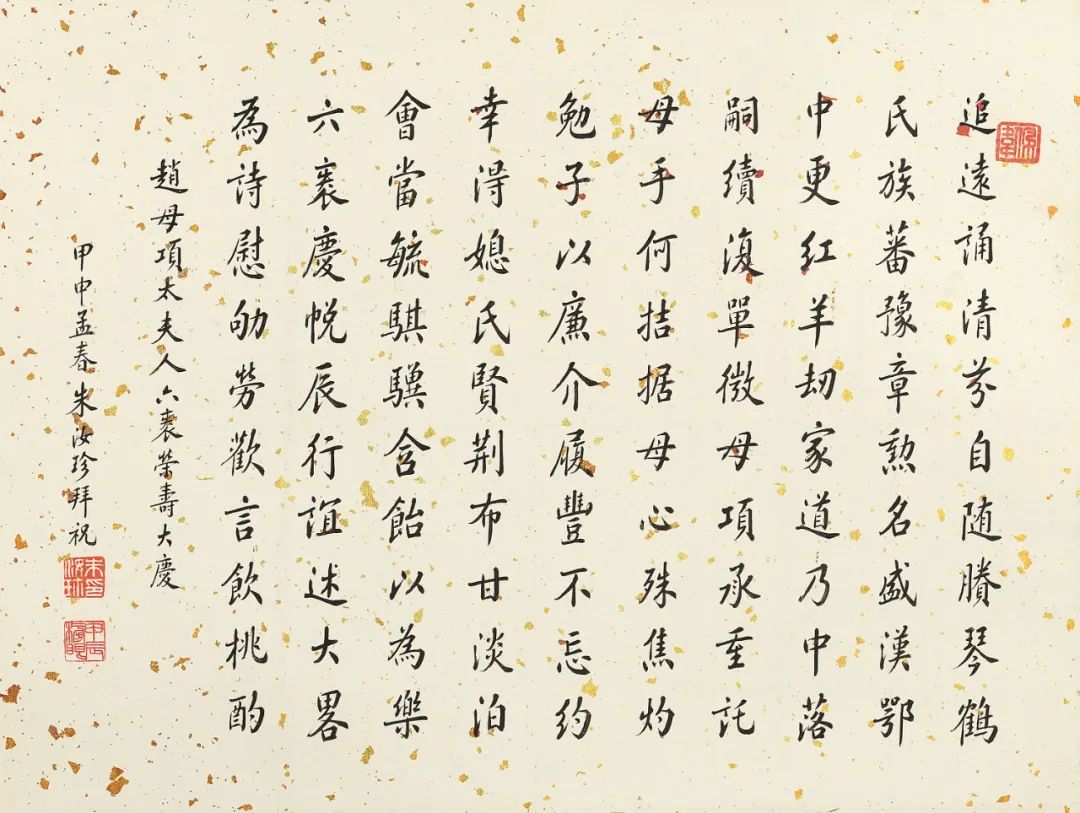 追遠誦清芬自随賸琴鶴
氏族蕃豫章勲名盛漢鄂
中更紅羊刧家道乃中落
嗣續復單微母項承重託
母手何拮据母心殊焦灼
勉子以廉介履豐不忘約
幸淂媳氏賢荆布甘淡泊
會當毓騏驥含飴以為樂
六袠慶帨辰行誼述大畧
為詩慰劬勞歡言飲桃酌
趙母項太夫人六袠榮壽大慶
甲申孟春朱汝珍拜祝
朱汝珍印
甲辰